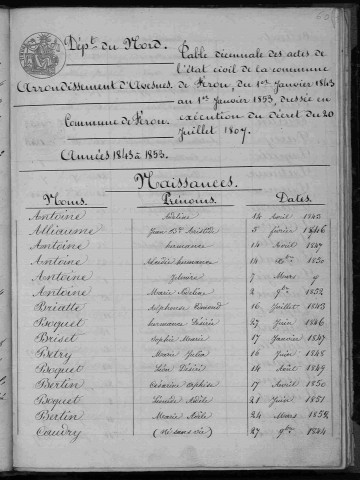 Dépt. du Nord.
Arrondissement d'Avesnes
Commune de Féron.
Années 1843 à 1853.
Table décennale des actes de
l'état civil de la commune
de Féron, du 1er Janvier 1843
au 1er Janvier 1853, dressée en
exécution du décret du 20
Juillet 1807.
Naissances.
Noms. Prénoms. Dates.
Antoine Adeline 14 Août 1843
Alliaume Jean Bte Aristide 5 février 1846
Antoine hermance 14 Avril 1847
Antoine hermance 14 Xbre 1850
Antoine 7 Mars
Antoine Marie Adeline 2 9bre 1852
Briatte Alphonse Edmond 16 Juillet 1843
Boquet hermance Désirée 27 Juin 1846
Briset Sophie Marie 17 Janvier 1847
Betry Marie Julia 16 Juin 1848
Boquet Léon Désiré 14 Août 1849
Bertin Césarine 17 Avril 1850
Boquet Adèle 21 Juin 1851
Bertin Marie Adèle 24 Mars 1852
Caudry (né sans vie) 27 9bre 1844